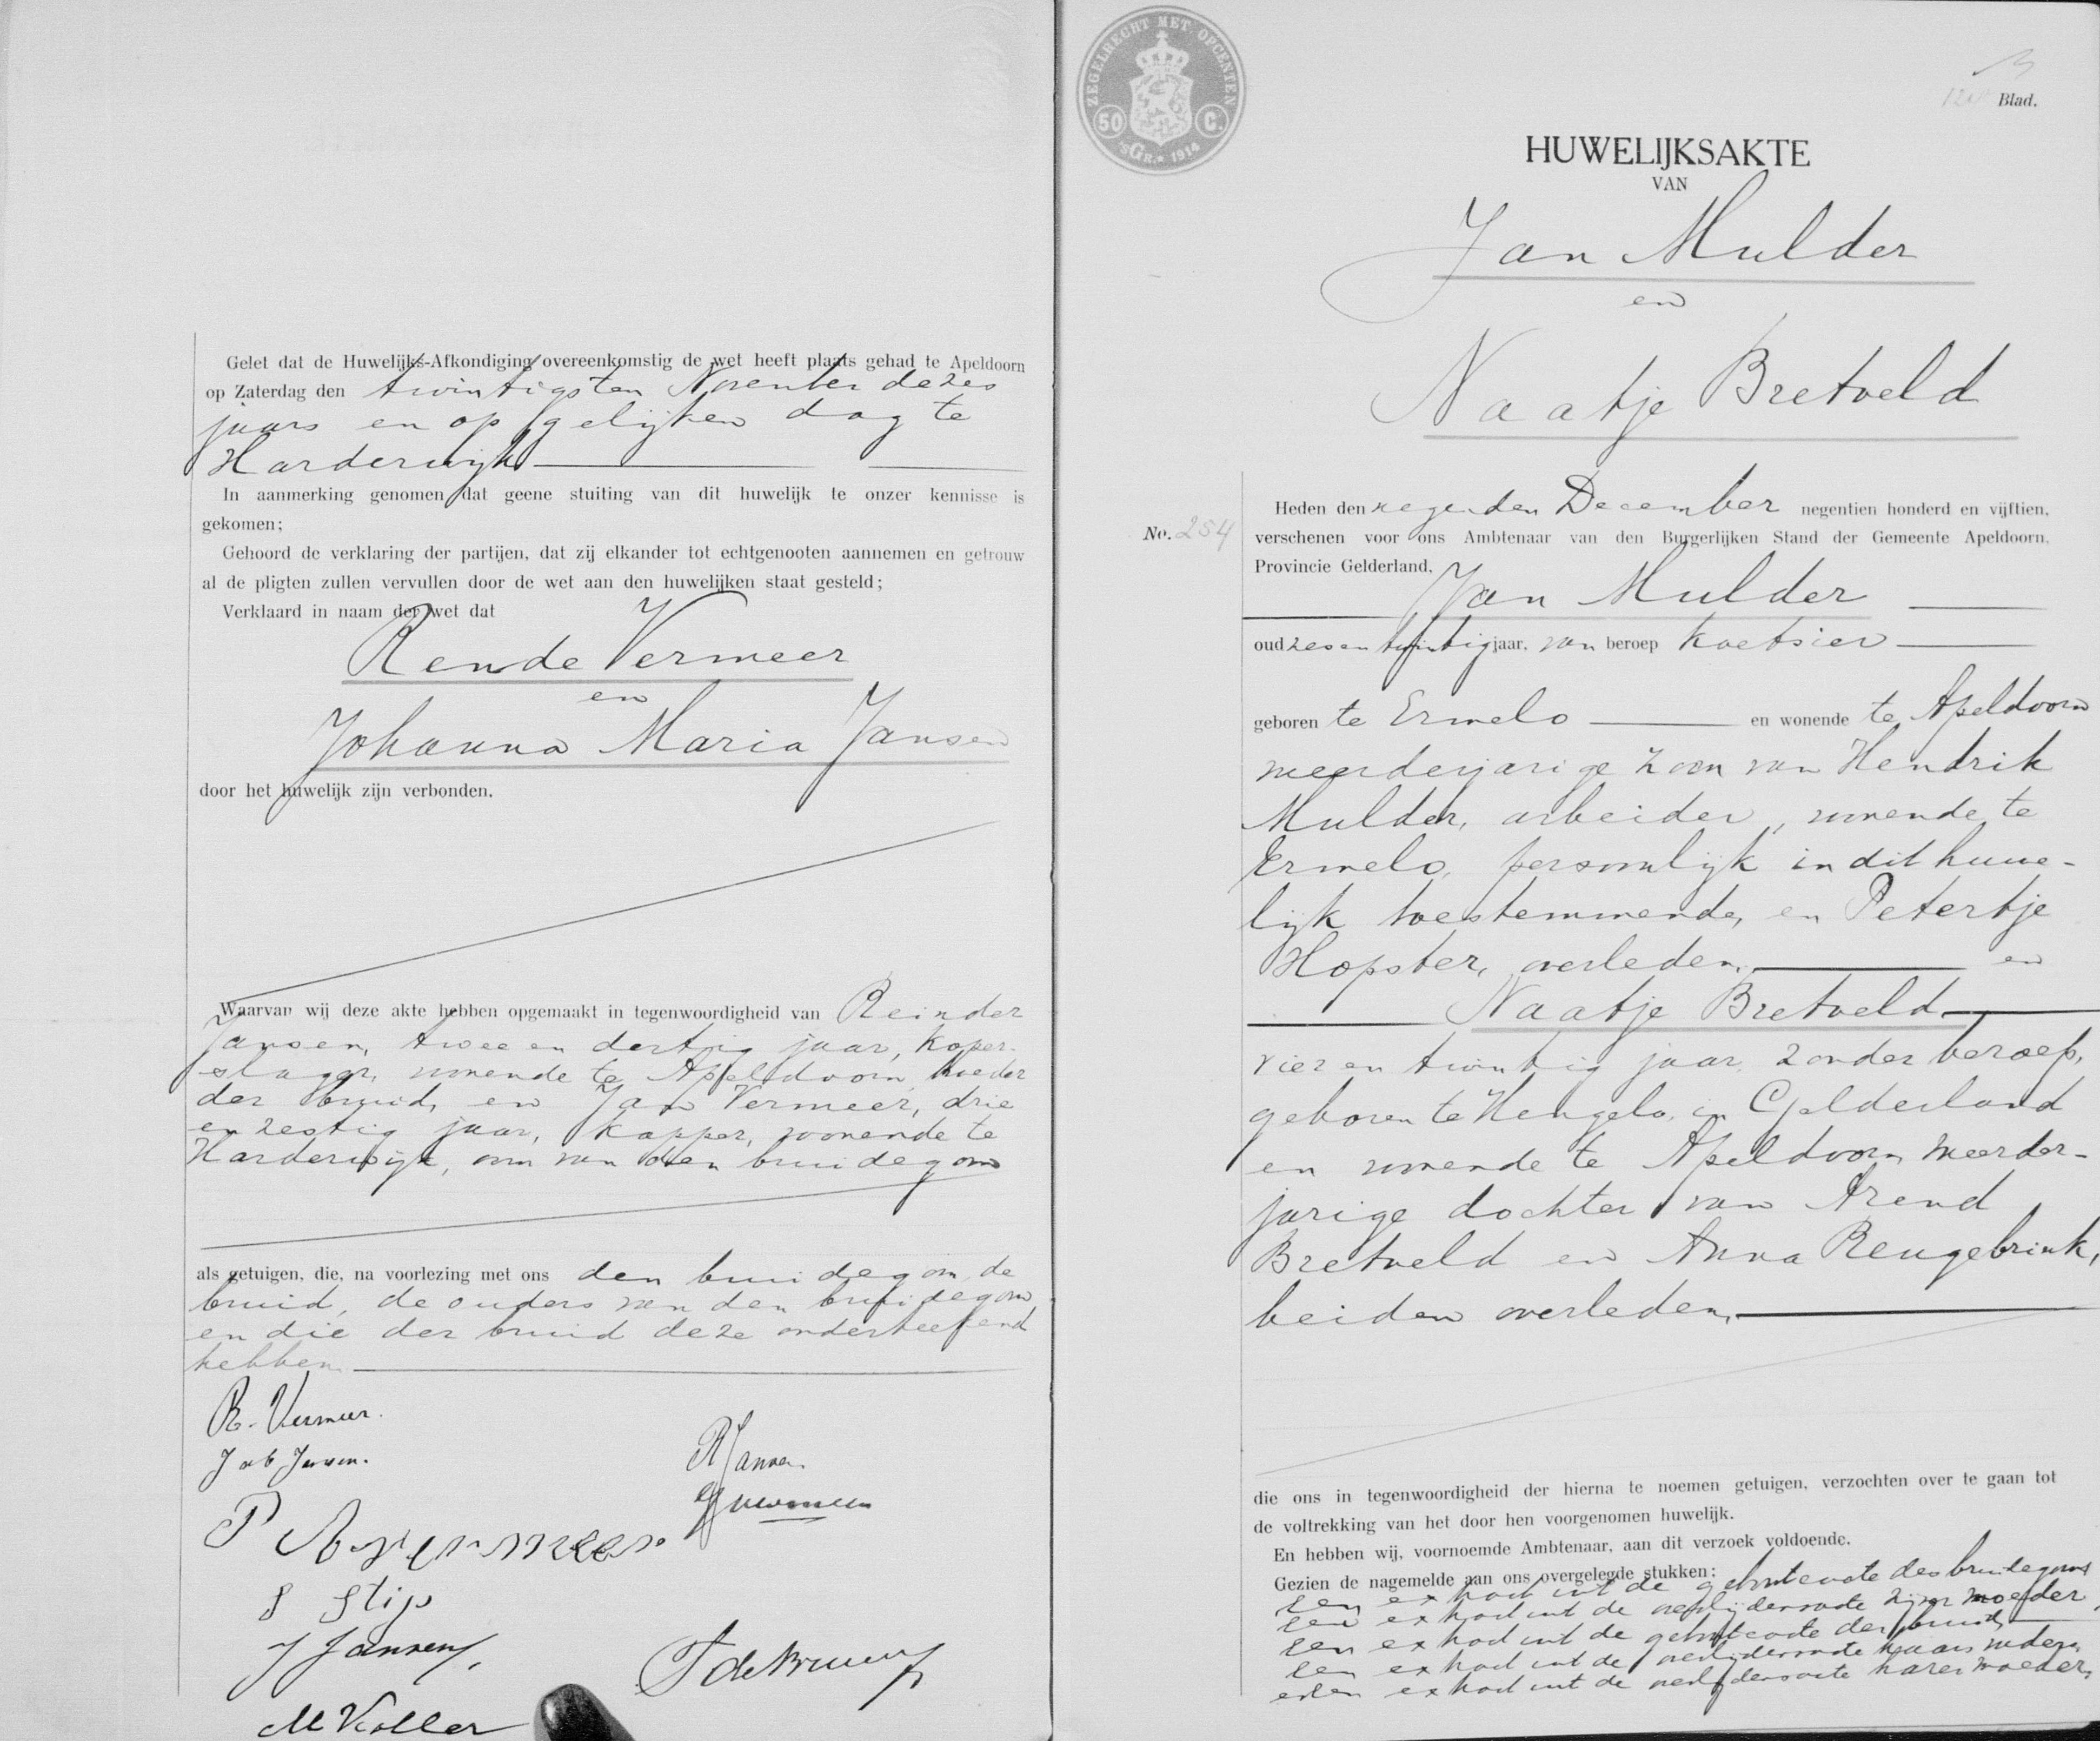 Gelet dat de Huwelijks-Afkondiging overeenkomstig de wet heeft plaats gehad te Apeldoorn
op Zaterdag den twintigsten November dezes
jaars en op gelijken dag te
Harderwijk
In aanmerking genomen dat geene stuiting van dit huwelijk te onzer kennisse is
gekomen;
Gehoord de verklaring der partijen, dat zij elkander tot echtgenooten aannemen en getrouw
al de pligten zullen vervullen door de wet aan den huwelijken staat gesteld;
Verklaard in naam der wet dat
Rende Vermeer
en
Johanna Maria Jansen
door het huwelijk zijn verbonden.
Waarvan wij deze akte hebben opgemaakt in tegenwoordigheid van Reinder
Jansen, twee en dertig jaar, koper-
slager, wonende te Apeldoorn, broeder
der bruid, en Jan Vermeer, drie
en zestig jaar, kapper, wonende te
Harderwijk, oom van den bruidegom
als getuigen, die, na voorlezing met ons den bruidegom, de
bruid, de ouders van den bruidegom
en die der bruid deze onderteekend
hebben.
R. Vermeer.
Joh Jansen.
RJansen
P
Vermeer
S Stip
J Jansen,
M Koller
ZEGELRECHT MET OPCENTEN
50 C.
'sGR. 1914
Blad.
HUWELIJKSAKTE
VAN
Jan Mulder
en
Naatje Bretveld
No. 254
Heden den negenden December negentien honderd en vijftien,
verschenen voor ons Ambtenaar van den Burgerlijken Stand der Gemeente Apeldoorn,
Provincie Gelderland,
Jan Mulder
oud zes en twintig jaar, van beroep koetsier
geboren te Ermelo en wonende te Apeldoorn
meerderjarige zoon van Hendrik
Mulder, arbeider, wonende te
Ermelo, persoonlijk in dit huwe-
lijk toestemmende, en Petertje
Hopster, overleden, en
Naatje Bretveld
vier en twintig jaar, zonder beroep,
geboren te Hengelo, in Gelderland
en wonende te Apeldoorn meerder-
jarige dochter van Arend
Bretveld en Anna Reugebrink,
beiden overleden,
die ons in tegenwoordigheid der hierna te noemen getuigen, verzochten over te gaan tot
de voltrekking van het door hen voorgenomen huwelijk.
En hebben wij, voornoemde Ambtenaar, aan dit verzoek voldoende.
Gezien de nagemelde aan ons overgelegde stukken:
een extract uit de geboorteacte des bruidegoms
een extract uit de overlijdensacte zijner moeder,
een extract uit de geboorteacte der bruid,
een extract uit de overlijdensacte haars vaders,
en een extract uit de overlijdensacte harer moeder,